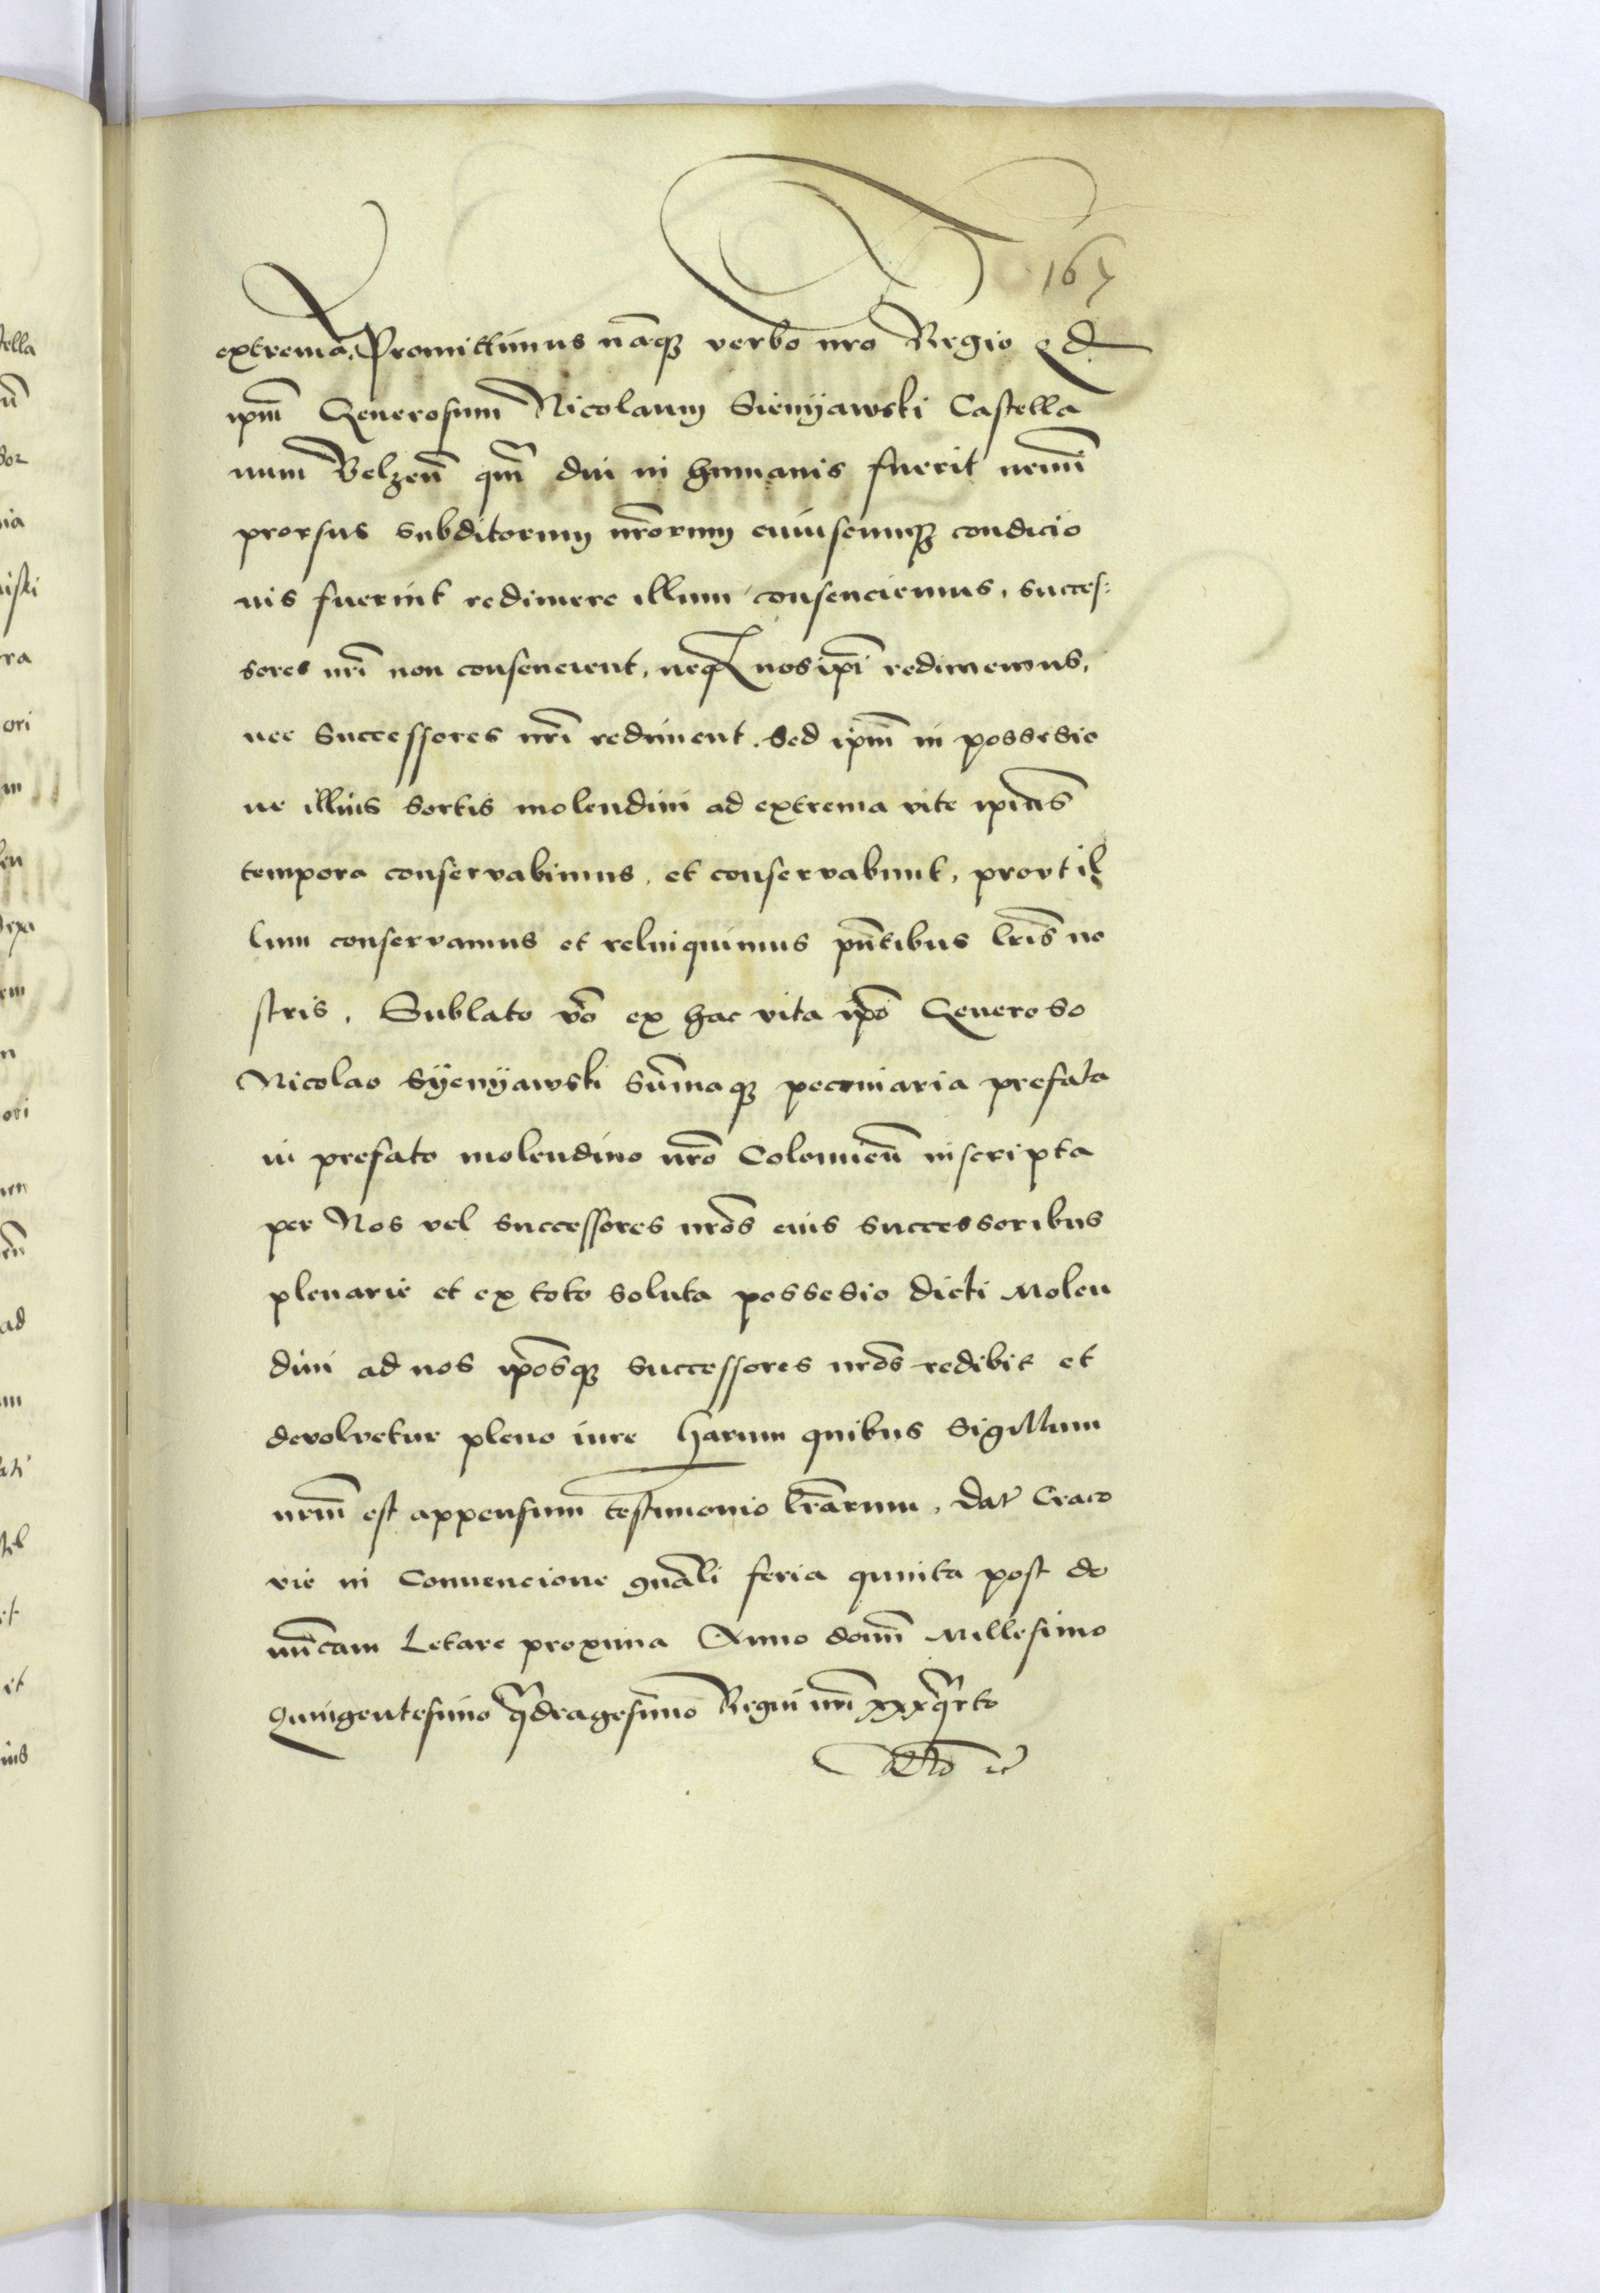 167
extrema. Promittimus nāq3 verbo nro Regio qd
ipm̄ Generosum Nicolaum Sienyawski Castella
num Belzen̄ qm̄ diu in humanis fuerit nemī
prorsus subditorum nrōrum cuiuscumq3 condicio
nis fuerint redimere illum consenciemus, succes:
sores nrī non consencient, neq3 nos ipī redimemus,
nec Successores nrī rediment. Sed ipm̄ in possesio
ne illius sortis molendini ad extrema vite ipīus
tempora conservabimus, et conservabunt, prout il
lum conservamus et relinquimus pn̄tibus lrīs no
stris. Sublato vō ex hac vita ipō Generoso
Nicolao Syenyawski Sūmaq3 pecuniaria prefata
in prefato molendino nrō Colomien̄ inscripta
per Nos vel successores nrōs eius successoribus
plenarie et ex toto soluta possesio dicti Molen
dini ad nos ipōsq3 successores nrōs redibit et
devolvetur pleno iure Harum quibus Sigillum
nrm̄ est appensum testimonio lrārum. Dat̄ Craco
vie in Convencione gnāli feria quinta post do
mn̄cam Letare proxima Anno domī Millesimo
Quingentesimo qͣdragesimo Regni nrī xxxqͣrto